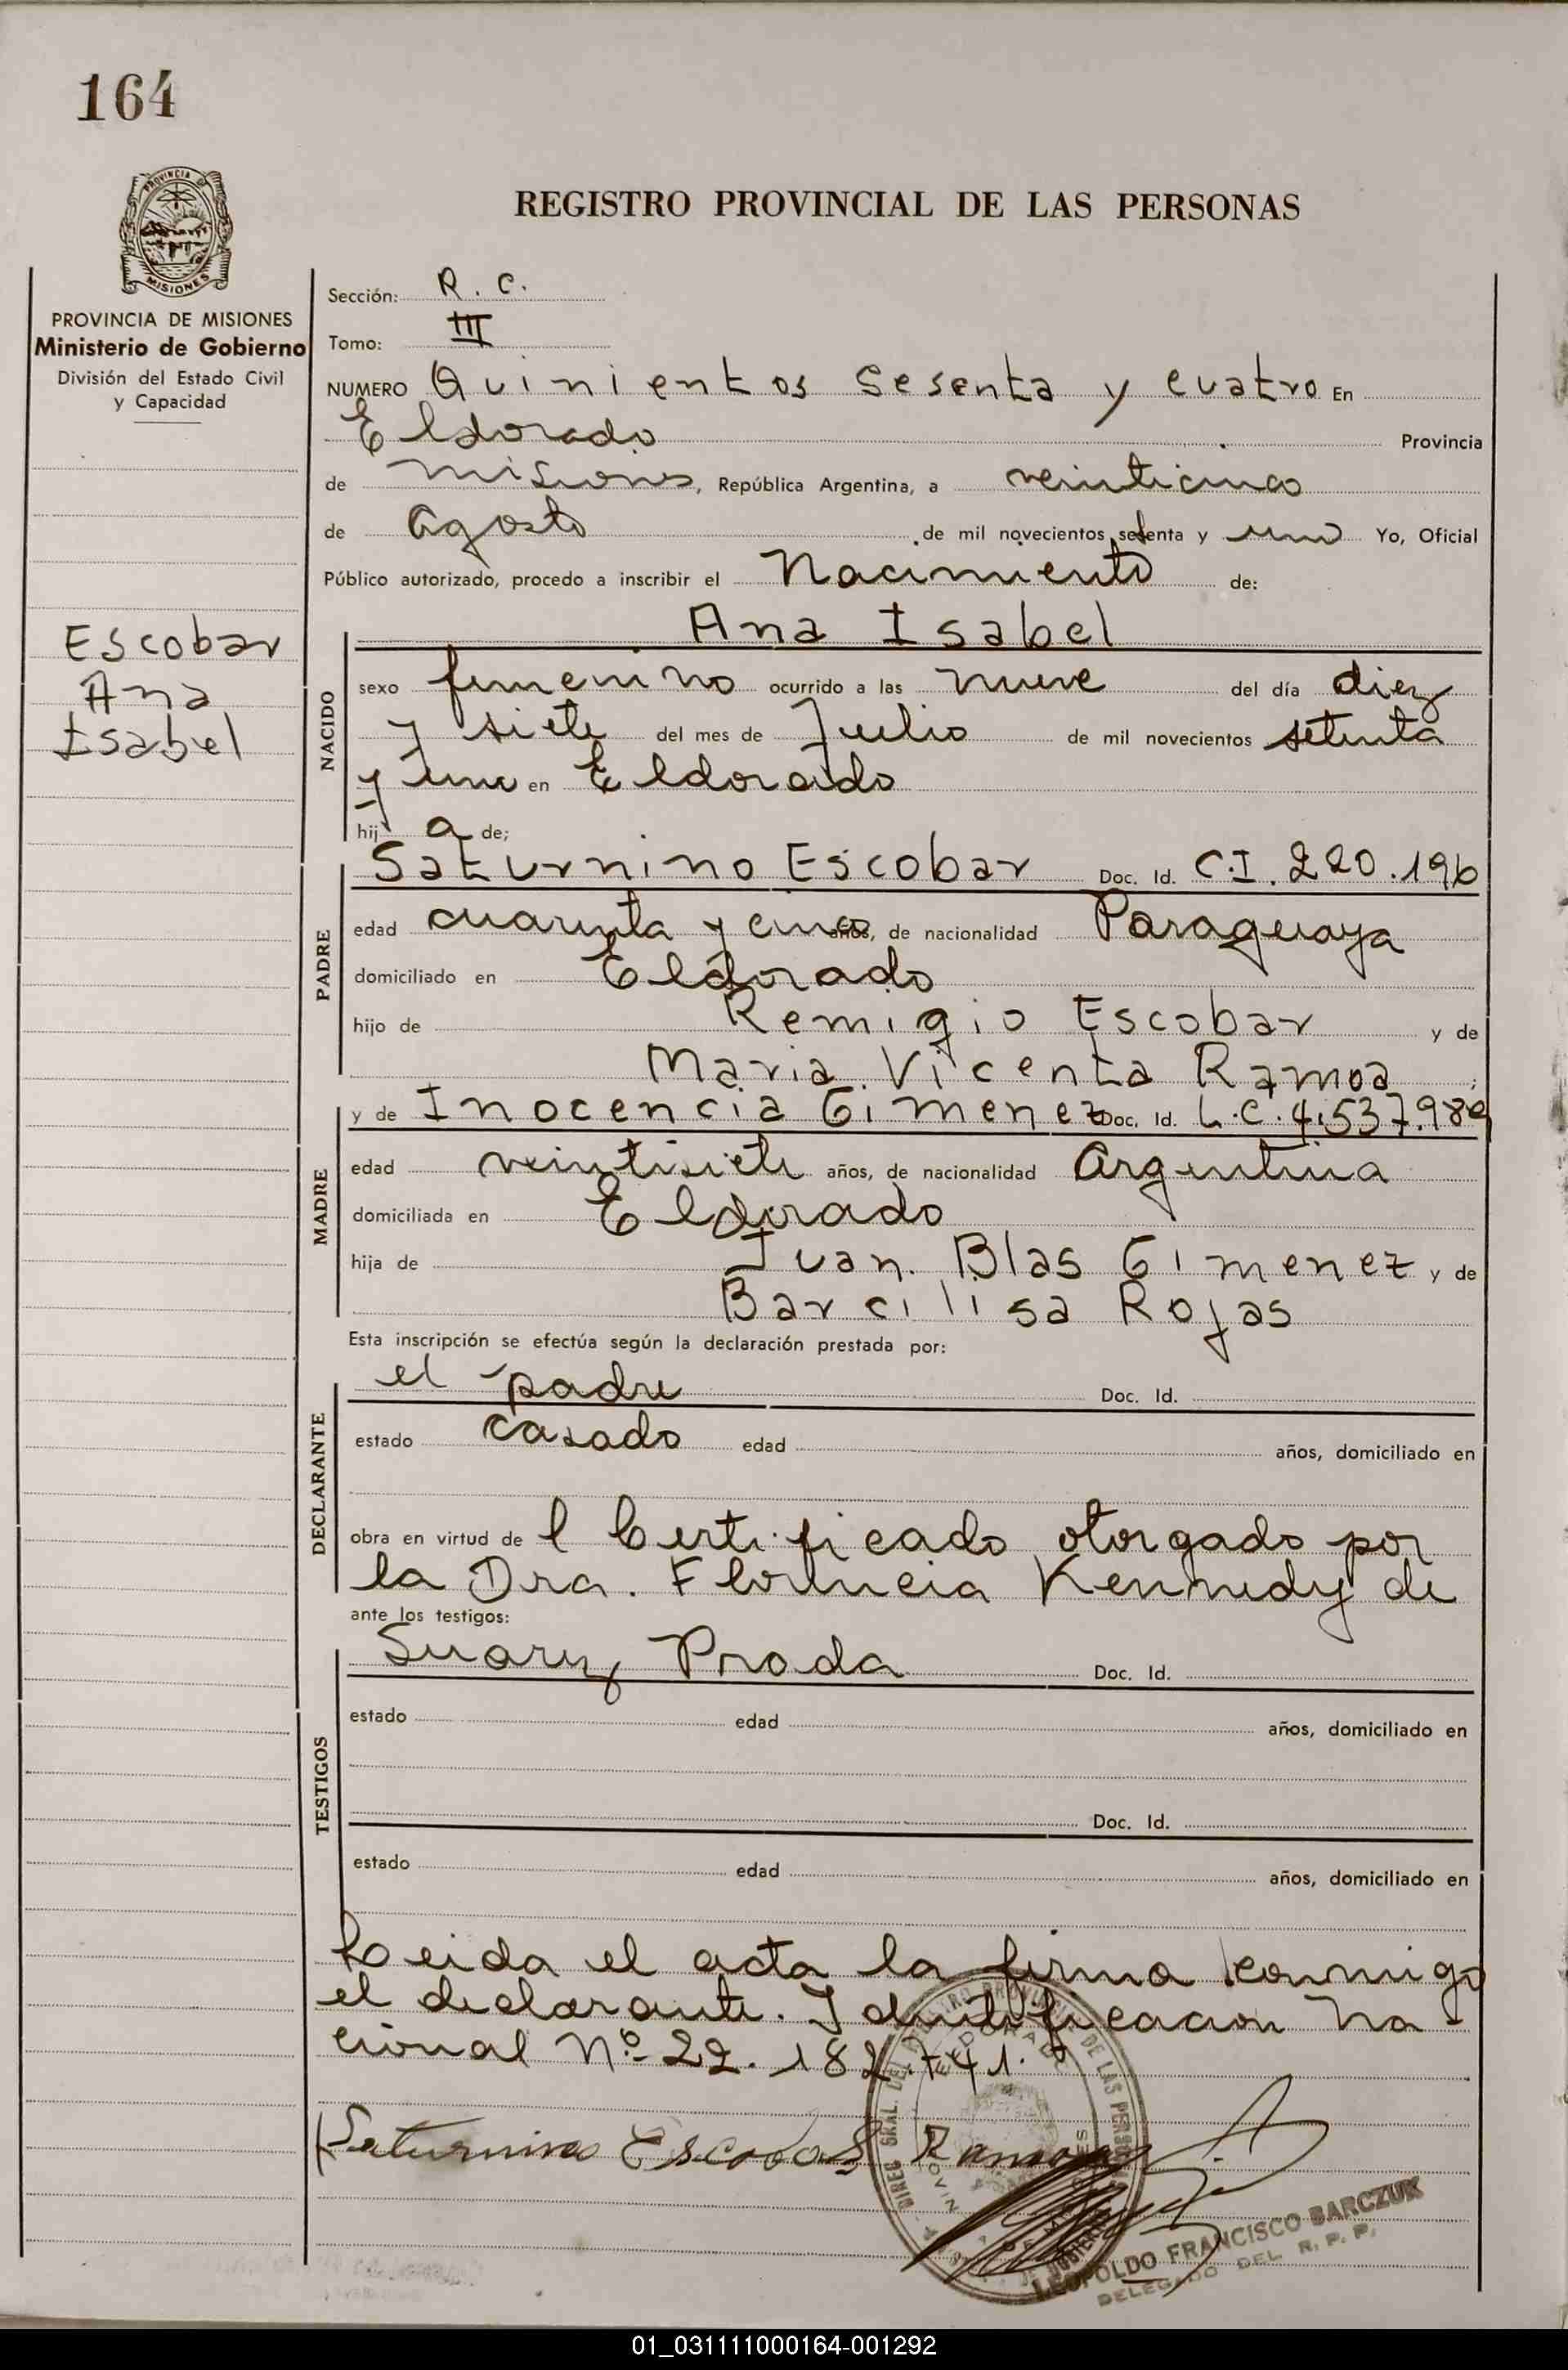 164
PROVINCIA
MISIONES
REGISTRO PROVINCIAL DE LAS PERSONAS
PROVINCIA DE MISIONES
Ministerio de Gobierno
División del Estado Civil
y Capacidad
Escobar
Ana
Isabel
Sección: R. C.
Tomo: III
NUMERO Quinientos Sesenta y cuatro En
Eldorado Provincia
de Misiones, República Argentina, a veinticinco
de Agosto de mil novecientos setenta y uno Yo, Oficial
Público autorizado, procedo a inscribir el Nacimiento de:
NACIDO
Ana Isabel
sexo femenino ocurrido a las nueve del día diez
y siete del mes de Julio de mil novecientos setenta
y uno en Eldorado
hij a de;
PADRE
Saturnino Escobar Doc. Id. C.I. 220.196
edad cuarenta y cinco años, de nacionalidad Paraguaya
domiciliado en Eldorado
hijo de Remigio Escobar y de
Maria Vicenta Ramoa ;
MADRE
y de Inocencia Gimenez Doc. Id. L.C. 4.537.989
edad veintisiete años, de nacionalidad Argentina
domiciliada en Eldorado
hija de Juan Blas Gimenez y de
Barcilisa Rojas
Esta inscripción se efectúa según la declaración prestada por:
DECLARANTE
el padre Doc. Id.
estado casado edad años, domiciliado en
obra en virtud de l Certificado otorgado por
la Dra. Florencia Kennedy de
ante los testigos:
TESTIGOS
Suarez Prada Doc. Id.
estado edad años, domiciliado en
Doc. Id.
estado edad años, domiciliado en
Leida el acta la firma conmigo
el declarante. Identificacion Na-
cional Nº 22.182.741.
Saturnino Escobar Ramoa
DIREC. GRAL. DEL REGISTRO PROVINCIAL DE LAS PERSONAS
ELDORADO
LEOPOLDO FRANCISCO BARCZUK
DELEGADO DEL R. P. P.
01_031111000164-001292